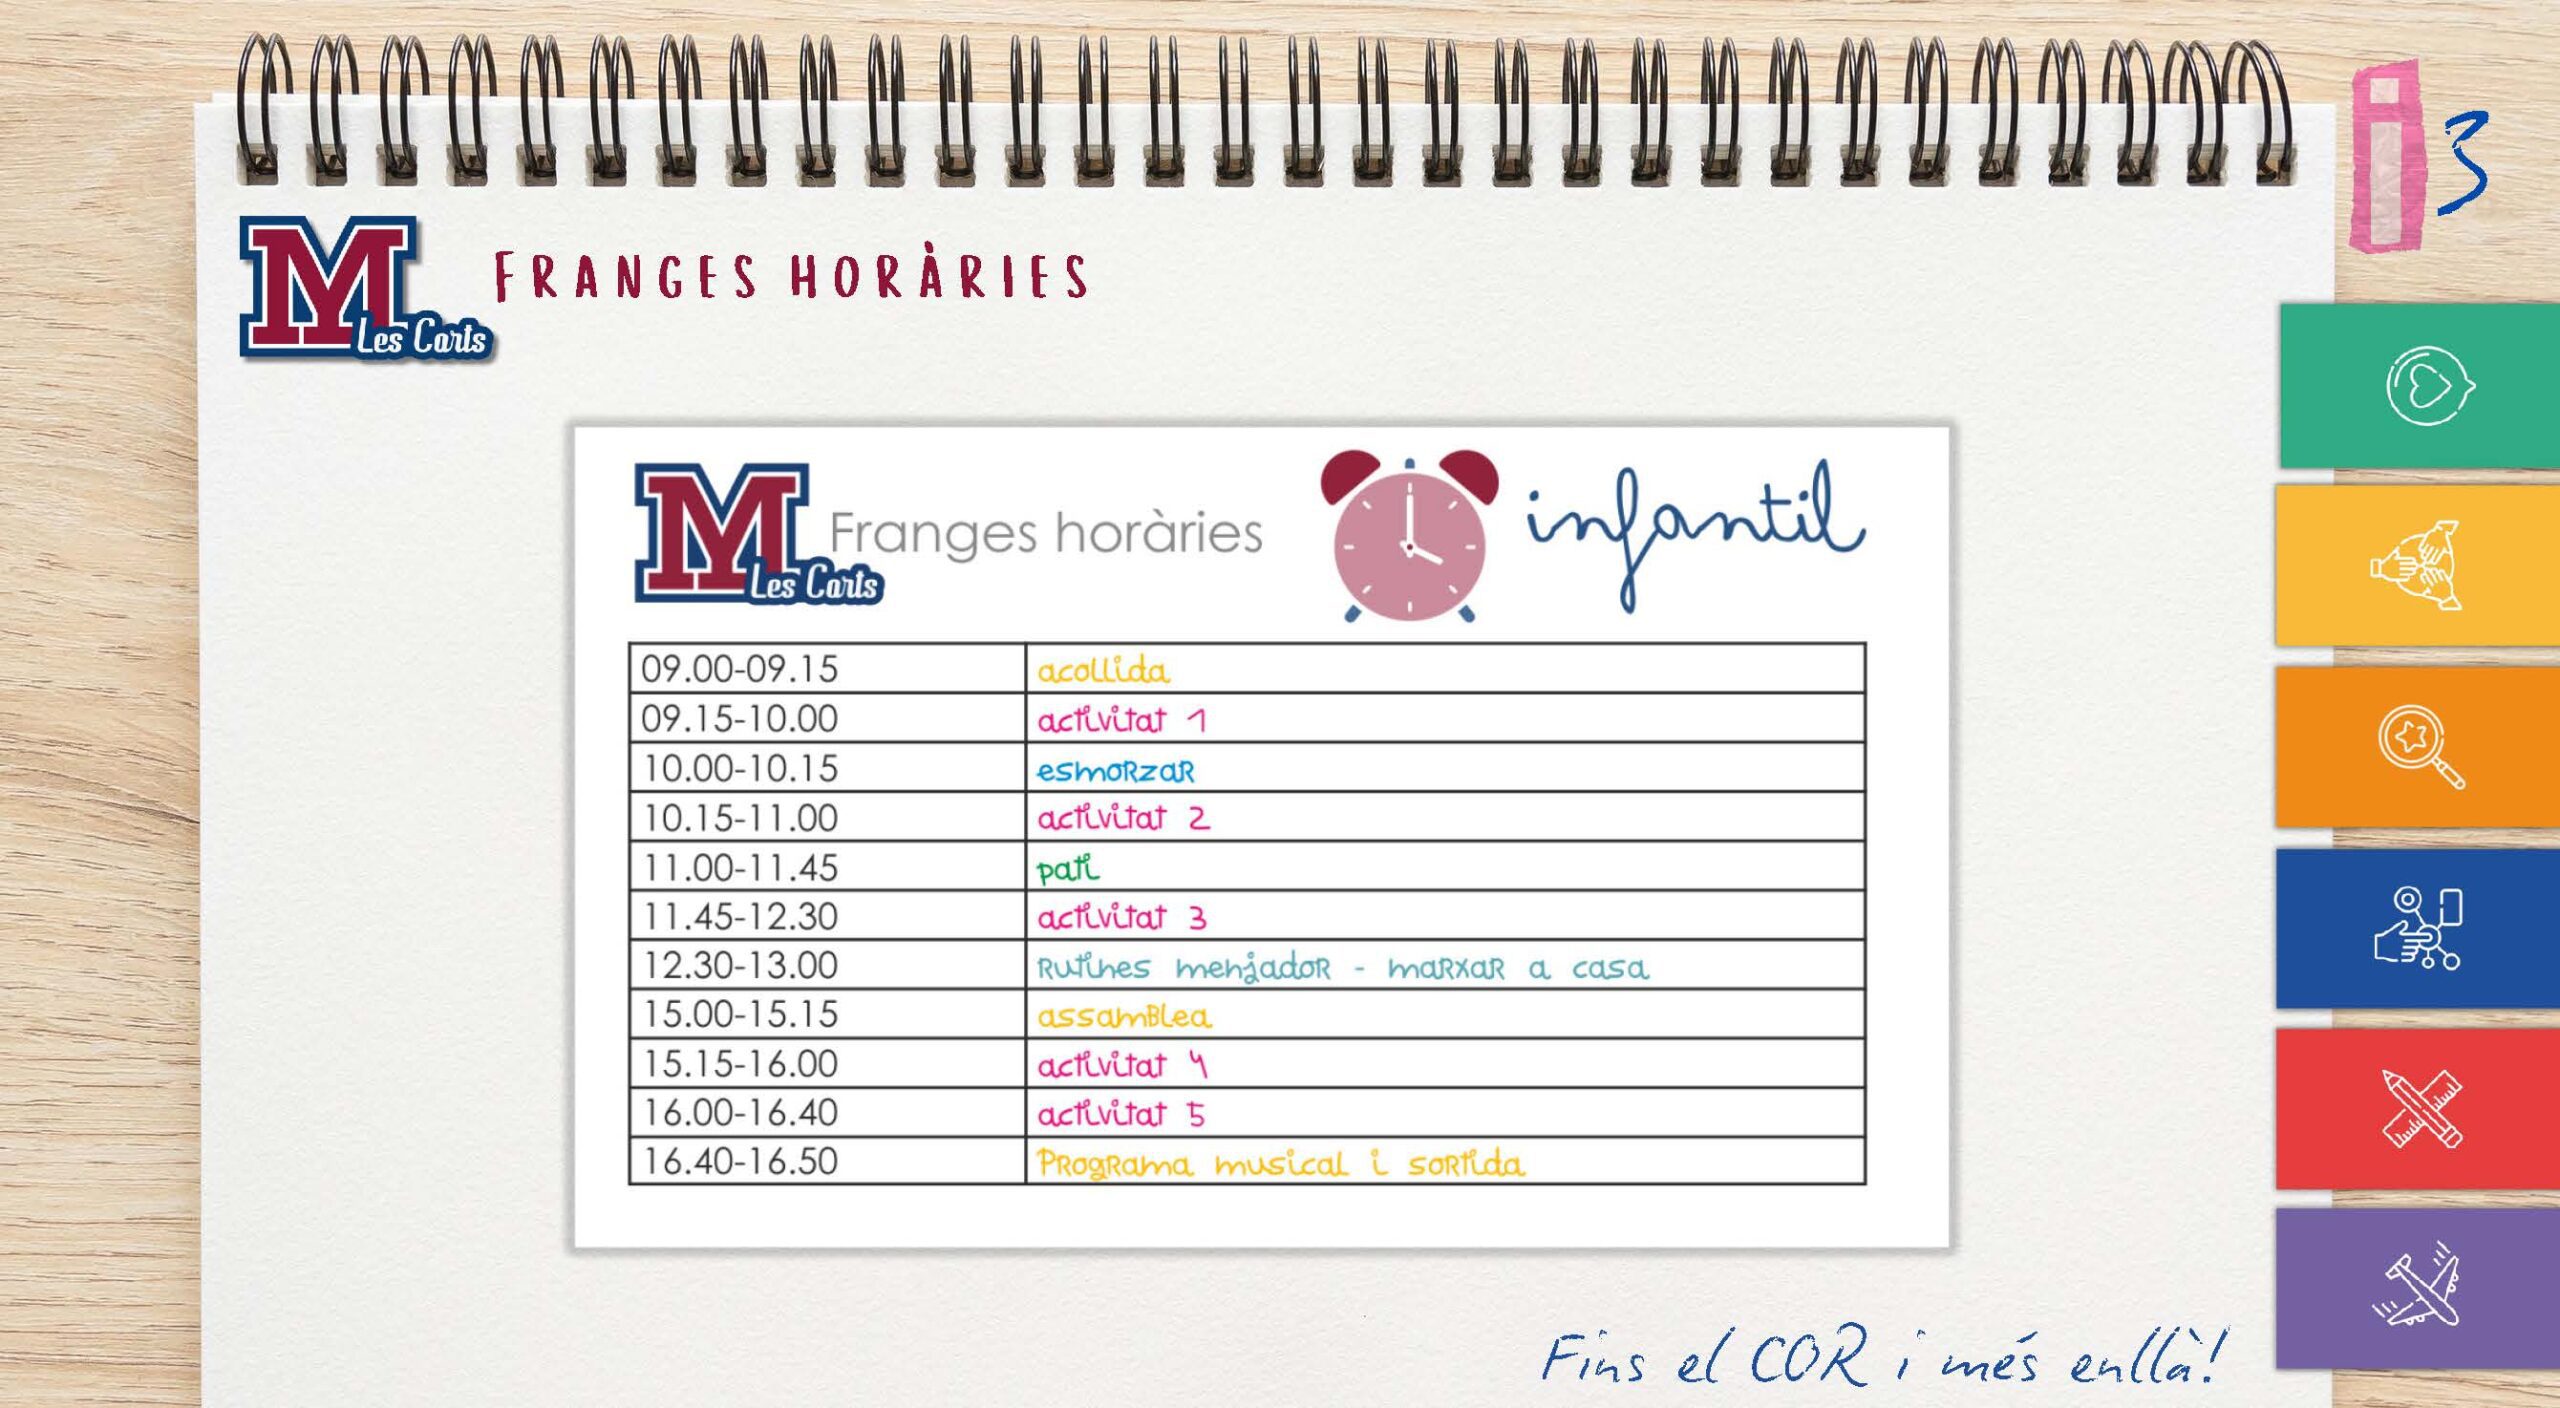 i3
M Les Corts
FRANGES HORÀRIES
M Les Corts
Franges horàries
infantil
09.00-09.15 acollida
09.15-10.00 activitat 1
10.00-10.15 esmorzar
10.15-11.00 activitat 2
11.00-11.45 pati
11.45-12.30 activitat 3
12.30-13.00 Rutines menjador - marxar a casa
15.00-15.15 assamblea
15.15-16.00 activitat 4
16.00-16.40 activitat 5
16.40-16.50 Programa musical i sortida
Fins el COR i més enllà!